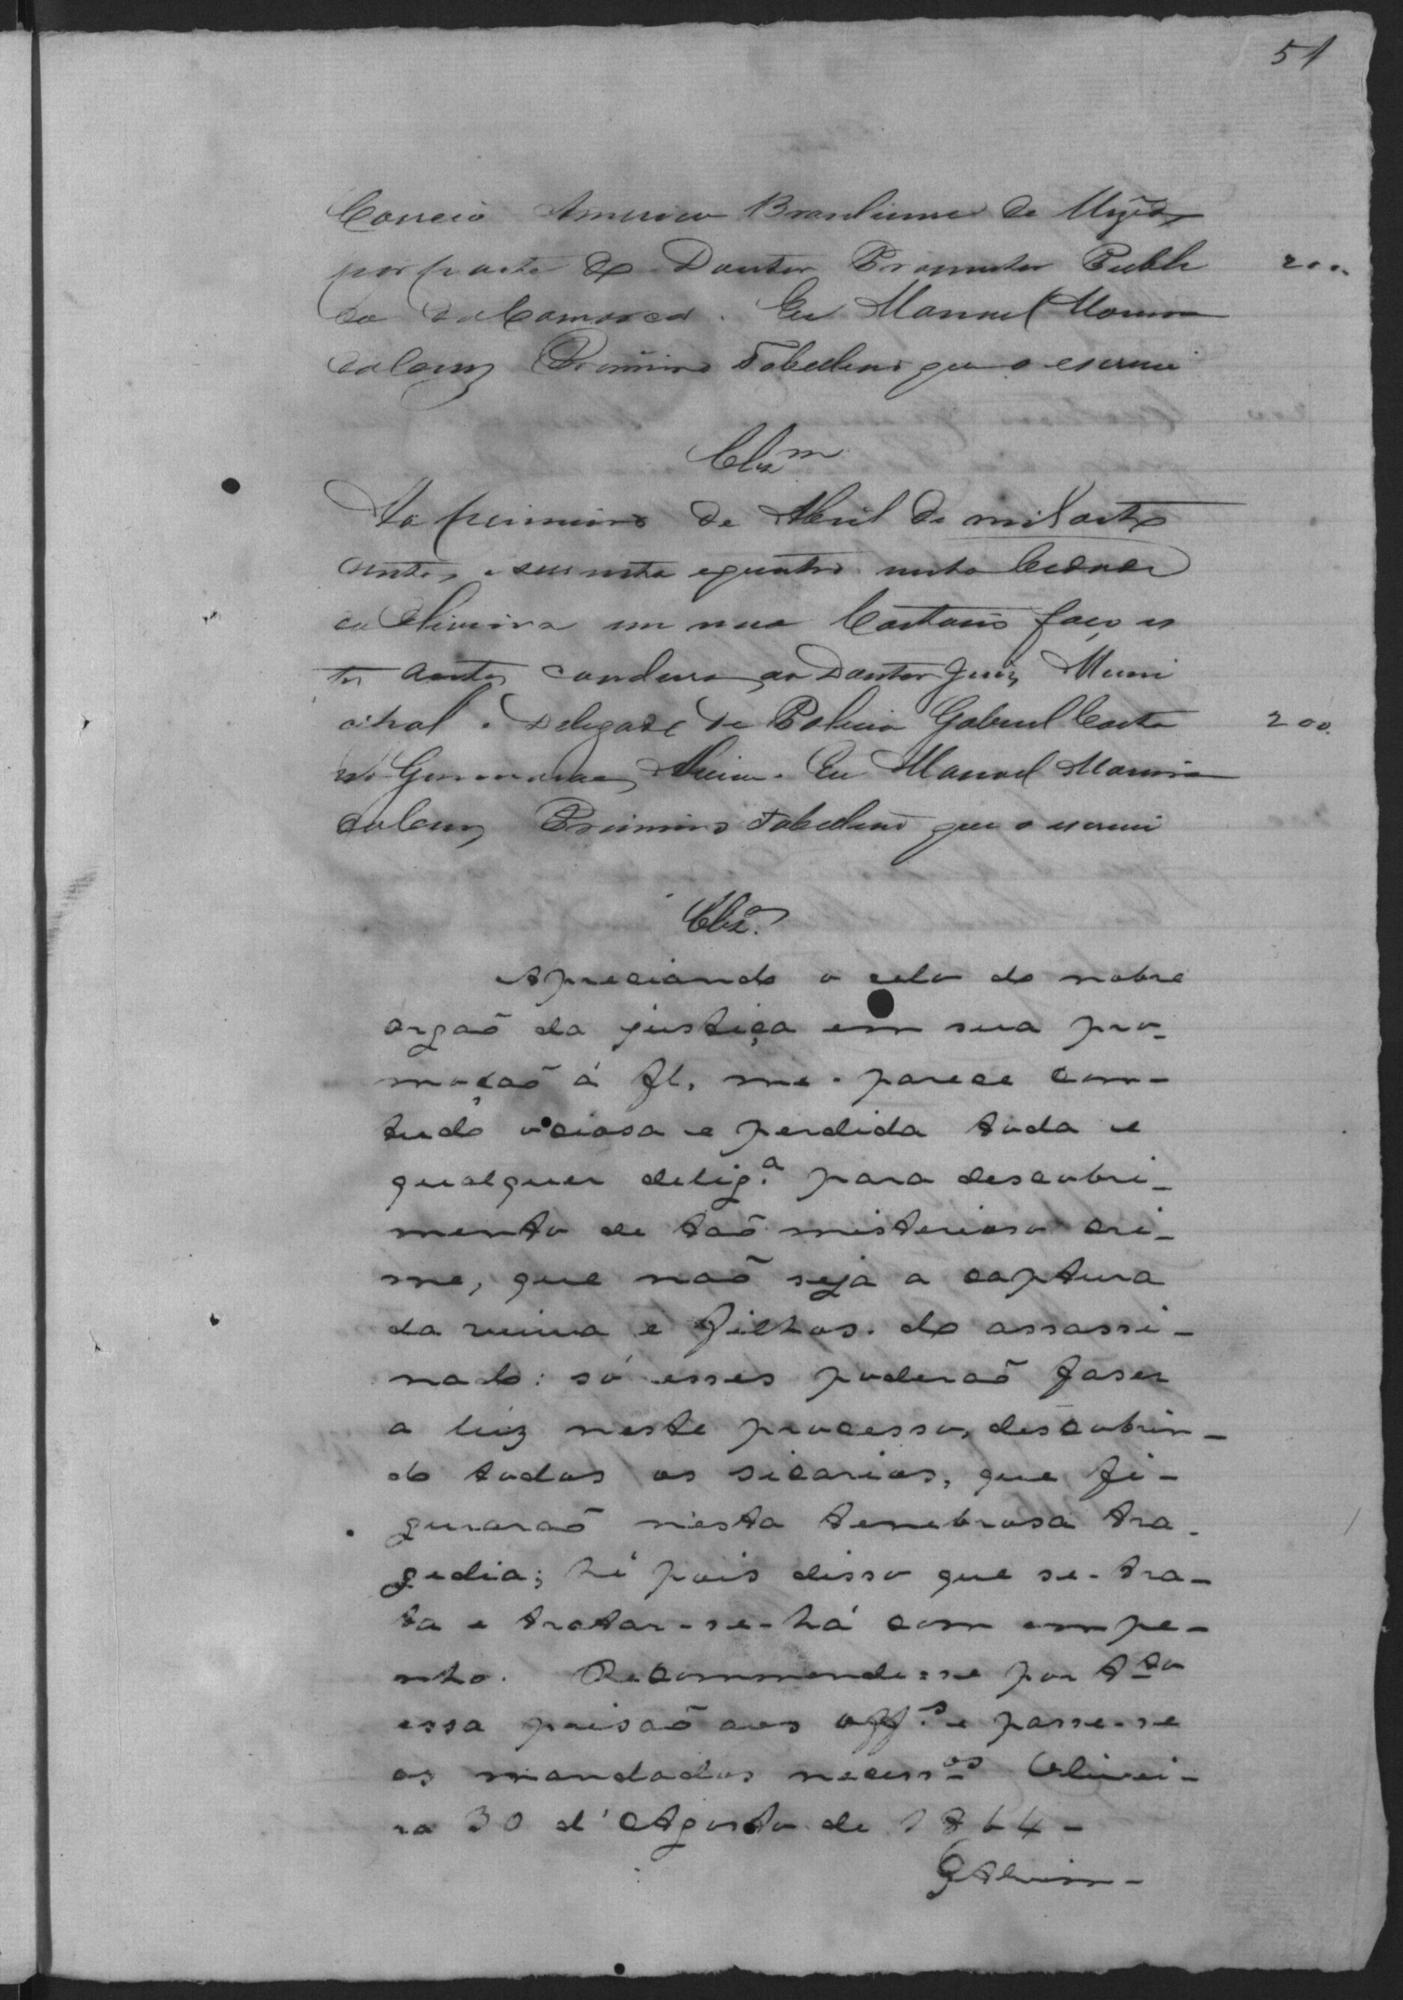 51
Correio Americo Brasiliense de
por parte do Doutor Promotor Publi 200
co da Comarca. Eu Manoel Moreira
da Cruz Primeiro Tabelliaõ que o escrevi
Clz.m
Ao primeiro de Abril de mil oito
centos e secenta e quatro nesta Cidade
da Oliveira em meu Cartorio faço es
tes autos concluzos ao Doutor Juiz Muni
cipal e Delegado de Policia Gabriel Caeta 200
no Guimaraes Alvim. Eu Manoel Moreira
da Cruz Primeiro Tabelliaõ que o escrevi
Clz.o
Apreciando o celo do nobre
orgaõ da justiça em sua pro-
moçaõ á fl, me-parece com-
tudo ociosa e perdida toda e
qualquer delig.a para descobri-
mento de taõ misterioso cri-
me, que naõ seja a captura
da viuva e filhos do assassi-
nado: só esses poderaõ faser
a luz neste processo, descobrin-
do todos os sicarios, que fi-
guraraõ nesta tenebrosa tra-
gedia; hé pois disso que se-tra-
ta e tratar-se-há com empe-
nho. Recommende-se por t.to
essa prisaõ aos off.s e passe-se
os mandados necess.os Olivei-
ra 30 d'Agosto de 1864-
GAlvim-